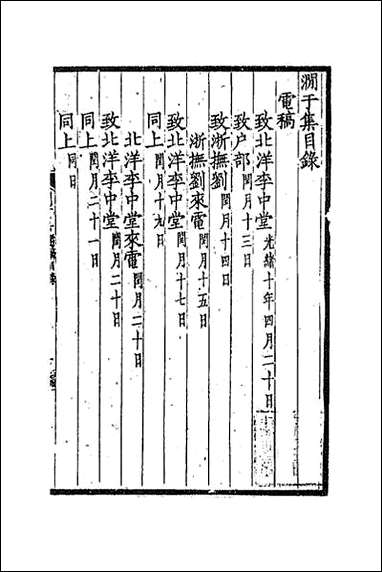 澗于集目錄
電稿
致北洋李中堂 光緒十年四月二十日
致户部 閏月十三日
致浙撫劉 閏月十四日
浙撫劉來電 閏月十五日
致北洋李中堂 閏月十七日
同上 閏月十九日
北洋李中堂來電 閏月二十日
致北洋李中堂 閏月二十日
同上 閏月二十一日
同上 同日